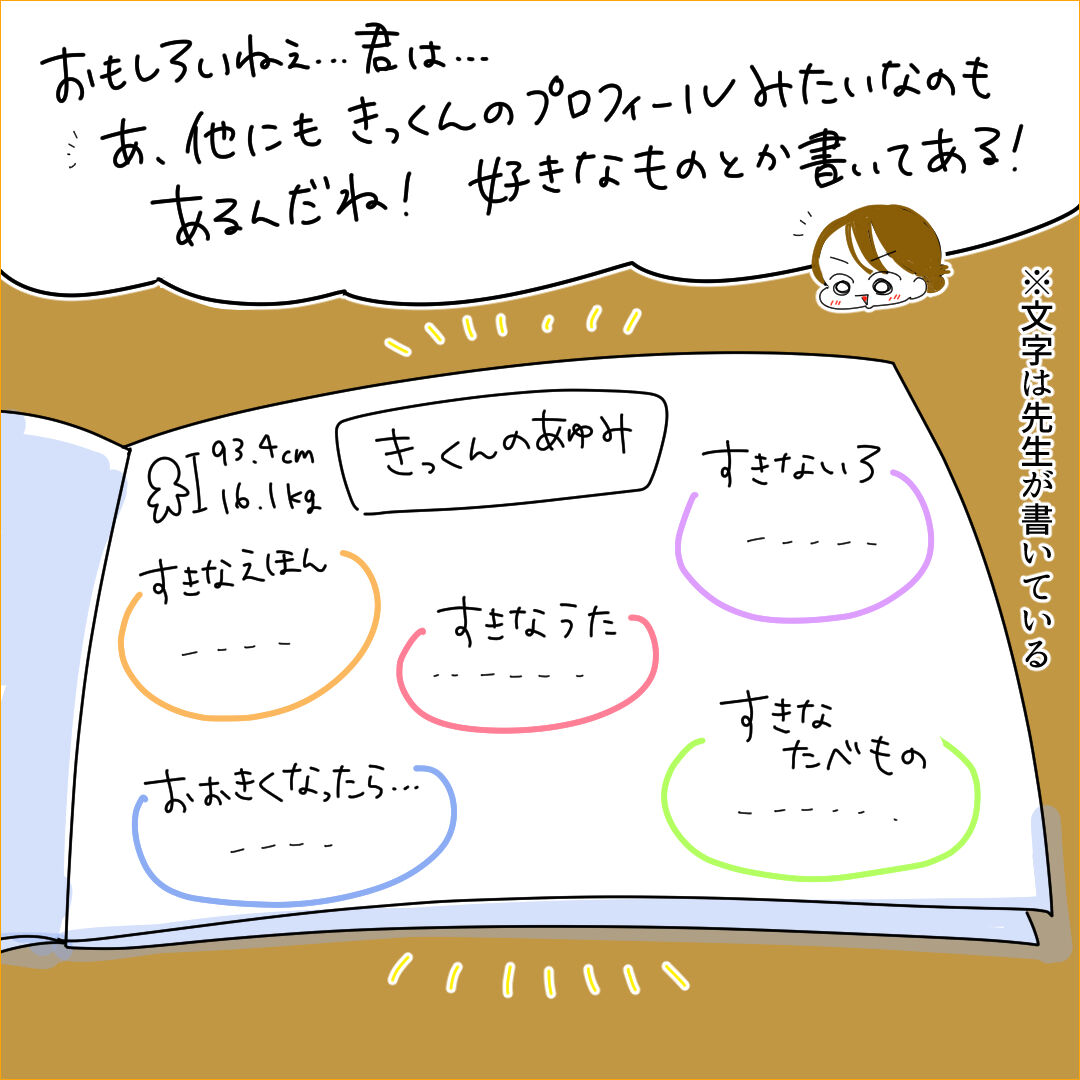 おもしろいねぇ…君は…
あ、他にも きっくんのプロフィールみたいなのも
あるんだね！ 好きなものとか書いてある！
※文字は先生が書いている
93.4cm
16.1kg
きっくんのあゆみ
すきないろ
すきなえほん
すきなうた
すきな
たべもの
おおきくなったら…